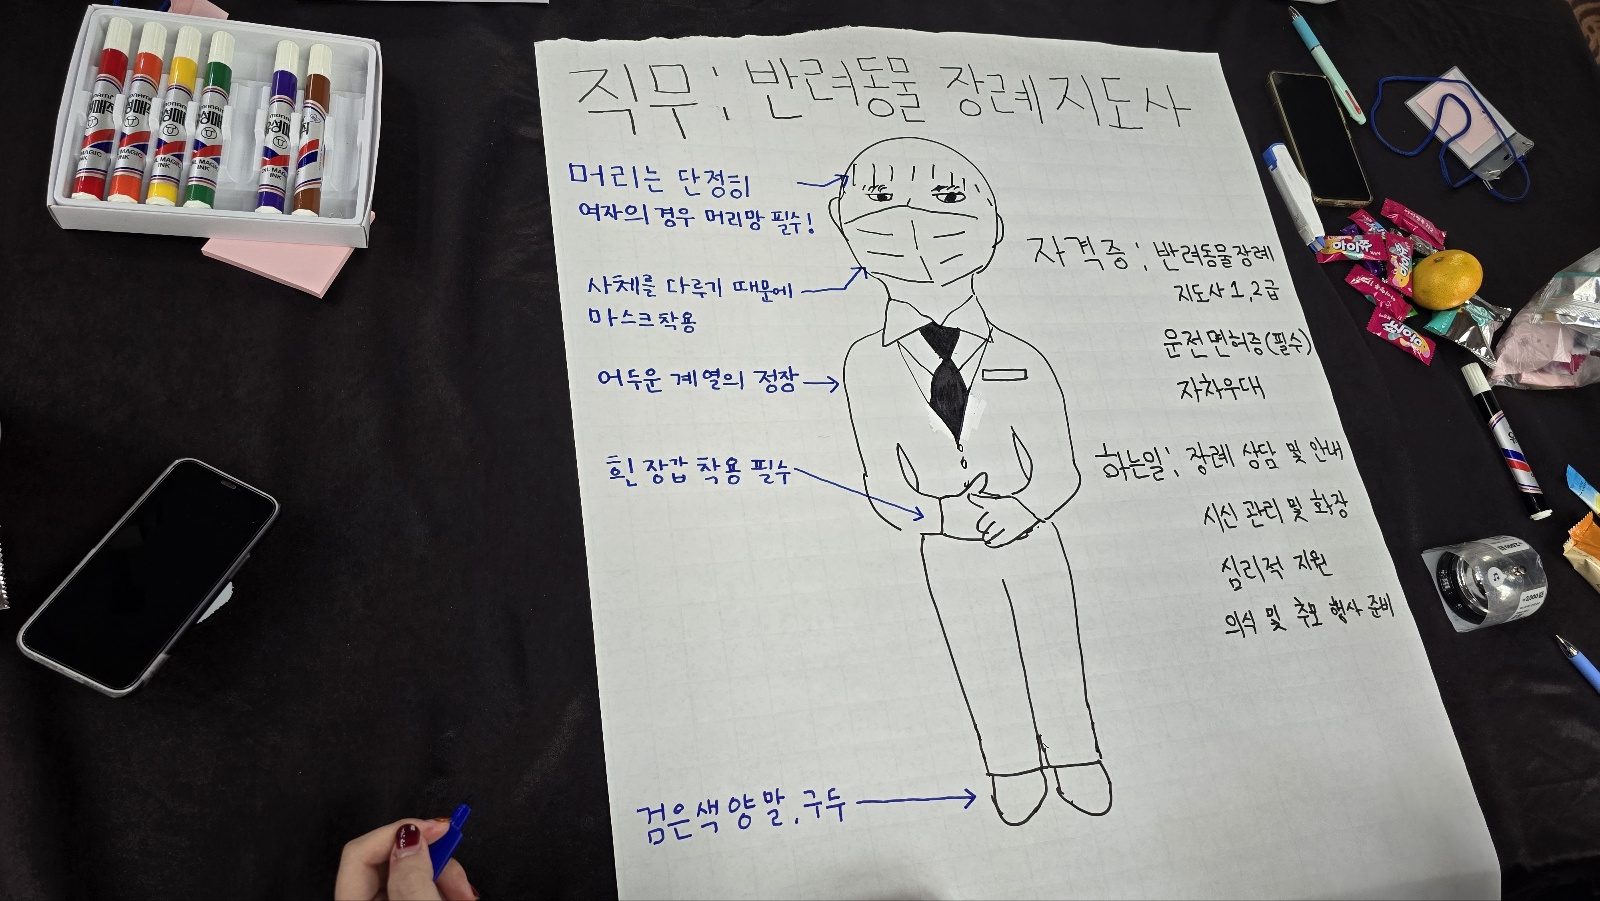 직무 : 반려동물 장례지도사
머리는 단정히
여자의 경우 머리망 필수!
사체를 다루기 때문에
마스크착용
어두운 계열의 정장
흰 장갑 착용 필수
검은색양말, 구두
자격증 : 반려동물장례
지도사 1, 2급
운전면허증(필수)
자차우대
하는일 : 장례 상담 및 안내
시신 관리 및 화장
심리적 지원
의식 및 추모 행사 준비
아이쥬